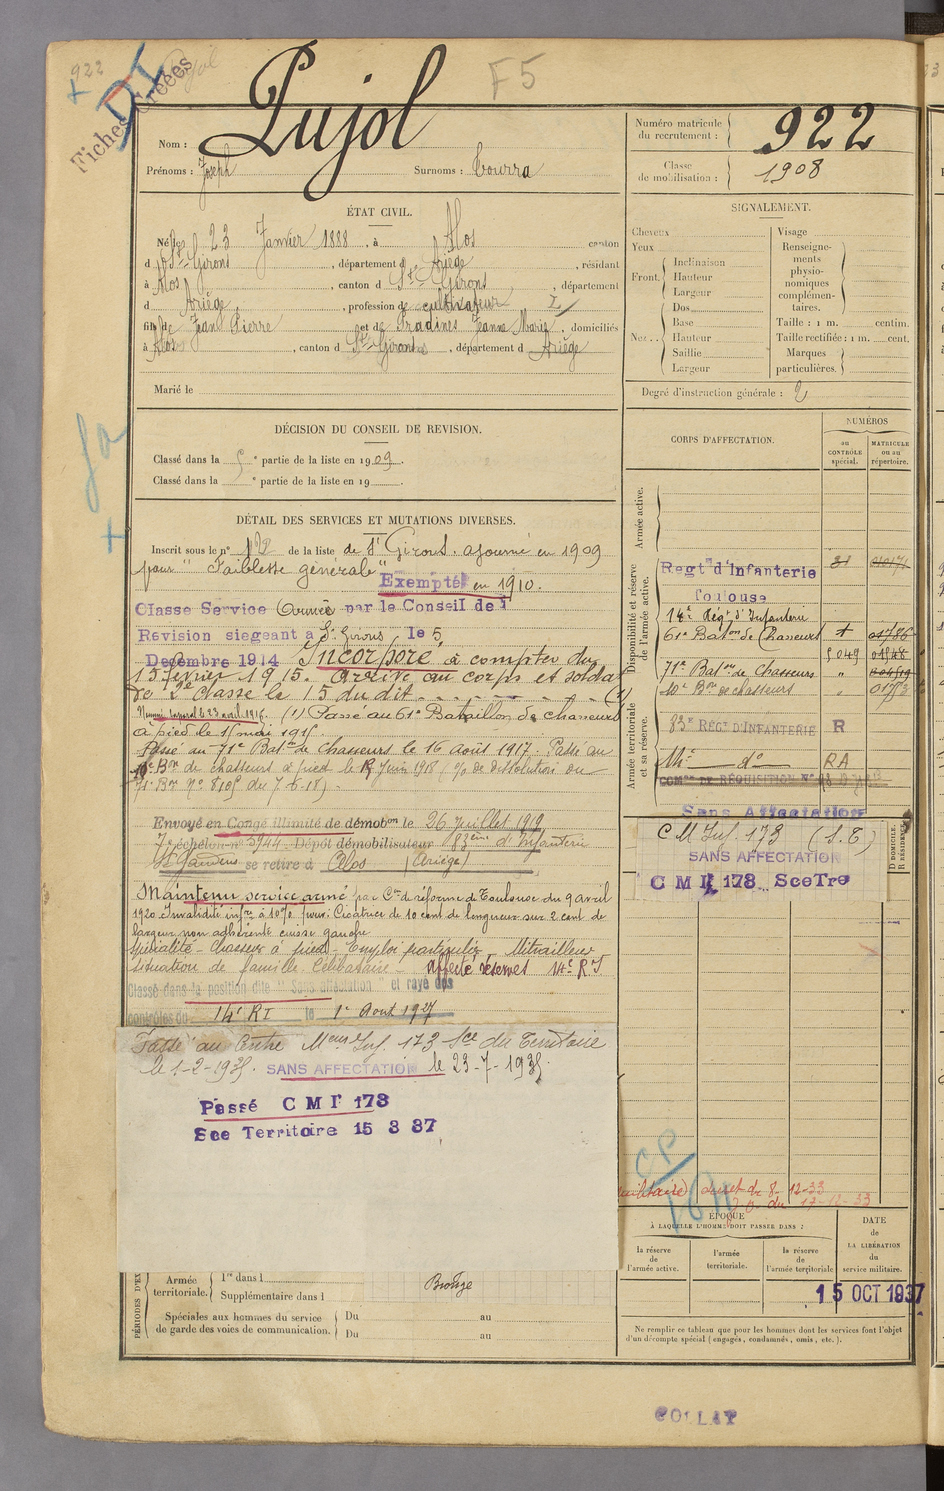 922
Fiches Créées
F5
Nom : Pujol
Prénoms : Joseph Surnoms : Tourra
Numéro matricule du recrutement : 922
Classe de mobilisation : 1908
ÉTAT CIVIL.
Né le 23 Janvier 1888, à Alos canton
d St-Girons, département d Ariège, résidant
à Alos, canton d St-Girons, département
d Ariège, profession de cultivateur
fils de Jean Pierre et de Pradines Jeanne Marie, domiciliés
à Alos, canton d St-Girons, département d Ariège
Marié le
SIGNALEMENT.
Cheveux
Yeux
Front. Inclinaison
Hauteur
Largeur
Nez... Dos
Base
Hauteur
Saillie
Largeur
Visage
Renseignements physionomiques complémentaires.
Taille : 1 m. centim.
Taille rectifiée : 1 m. cent.
Marques particulières.
Degré d'instruction générale : 2
DÉCISION DU CONSEIL DE REVISION.
Classé dans la 5e partie de la liste en 1909.
Classé dans la e partie de la liste en 19
DÉTAIL DES SERVICES ET MUTATIONS DIVERSES.
Inscrit sous le n° 112 de la liste de St Girons. ajourné en 1909
pour "Faiblesse générale"
Exempté en 1910.
Classe Service Armée par le Conseil de
Revision siegeant à St Girons le 5
Decembre 1914 Incorporé à compter du
15 février 1915. Arrivé au corps et soldat
de 2e classe le 15 du dit (1)
Nommé caporal le 23 avril 1916. (1) Passé au 61e Bataillon de chasseurs
à pied le 15 mai 1915
Passé au 71e Baton de Chasseurs le 16 août 1917. Passé au
10e Bon de chasseurs à pied le 19 Juin 1918 (% de dissolution du
71e Bon n° 8105 du 7-6-18).
Envoyé en Congé illimité de démobon le 26 juillet 1919
7e échelon n° 3944 Dépôt démobilisateur 83ème d'Infanterie
St Gaudens se retire à Alos (Ariège)
Maintenu service armé par Con de réforme de Toulouse du 9 avril
1920. Invalidité infre à 10% pour : Cicatrice de 10 cent de longueur sur 2 cent de
largeur non adhérente cuisse gauche
Spécialité - Chasseur à pied - Emploi particulier - Mitrailleur
Situation de famille Célibataire - Affecté réserves 14e R I
Classé dans la position dite "Sans affectation" et rayé des
contrôles du 14e RI le 1er Aout 1927
Passé au Centre Meur Inf. 173 Sce du Territoire
le 1-2-1935. SANS AFFECTATION le 23-7-1935
Passé C M I 173
Sce Territoire 15 3 37
CORPS D'AFFECTATION.
NUMÉROS
au CONTRÔLE spécial.
MATRICULE ou au répertoire.
Armée active.
Disponibilité et réserve de l'armée active.
Regt d'Infanterie
Toulouse
14e Régt d'Infanterie
61e Baton de Chasseurs
5049
71e Baton de Chasseurs "
10e Bon de chasseurs "
Armée territoriale et sa réserve.
83E REGT D'INFANTERIE R
14e do RA
COMon DE RÉQUISITION N°
Sans Affectation
C M Inf. 173 (S.T)
SANS AFFECTATION
C M I 173 Sce Tre
D DOMICILE.
R RÉSIDENCE.
CP
décret du 8-12-33
J.O. du 17-12-33
ÉPOQUE
À LAQUELLE L'HOMME DOIT PASSER DANS :
la réserve de l'armée active.
l'armée territoriale.
la réserve de l'armée territoriale
DATE de LA LIBÉRATION du service militaire.
15 OCT 1937
Ne remplir ce tableau que pour les hommes dont les services font l'objet
d'un décompte spécial (engagés, condamnés, omis, etc.).
PÉRIODES D'EX
Armée territoriale.
1re dans l
Supplémentaire dans l
Bronze
Spéciales aux hommes du service de garde des voies de communication.
Du au
Du au
COLLAT